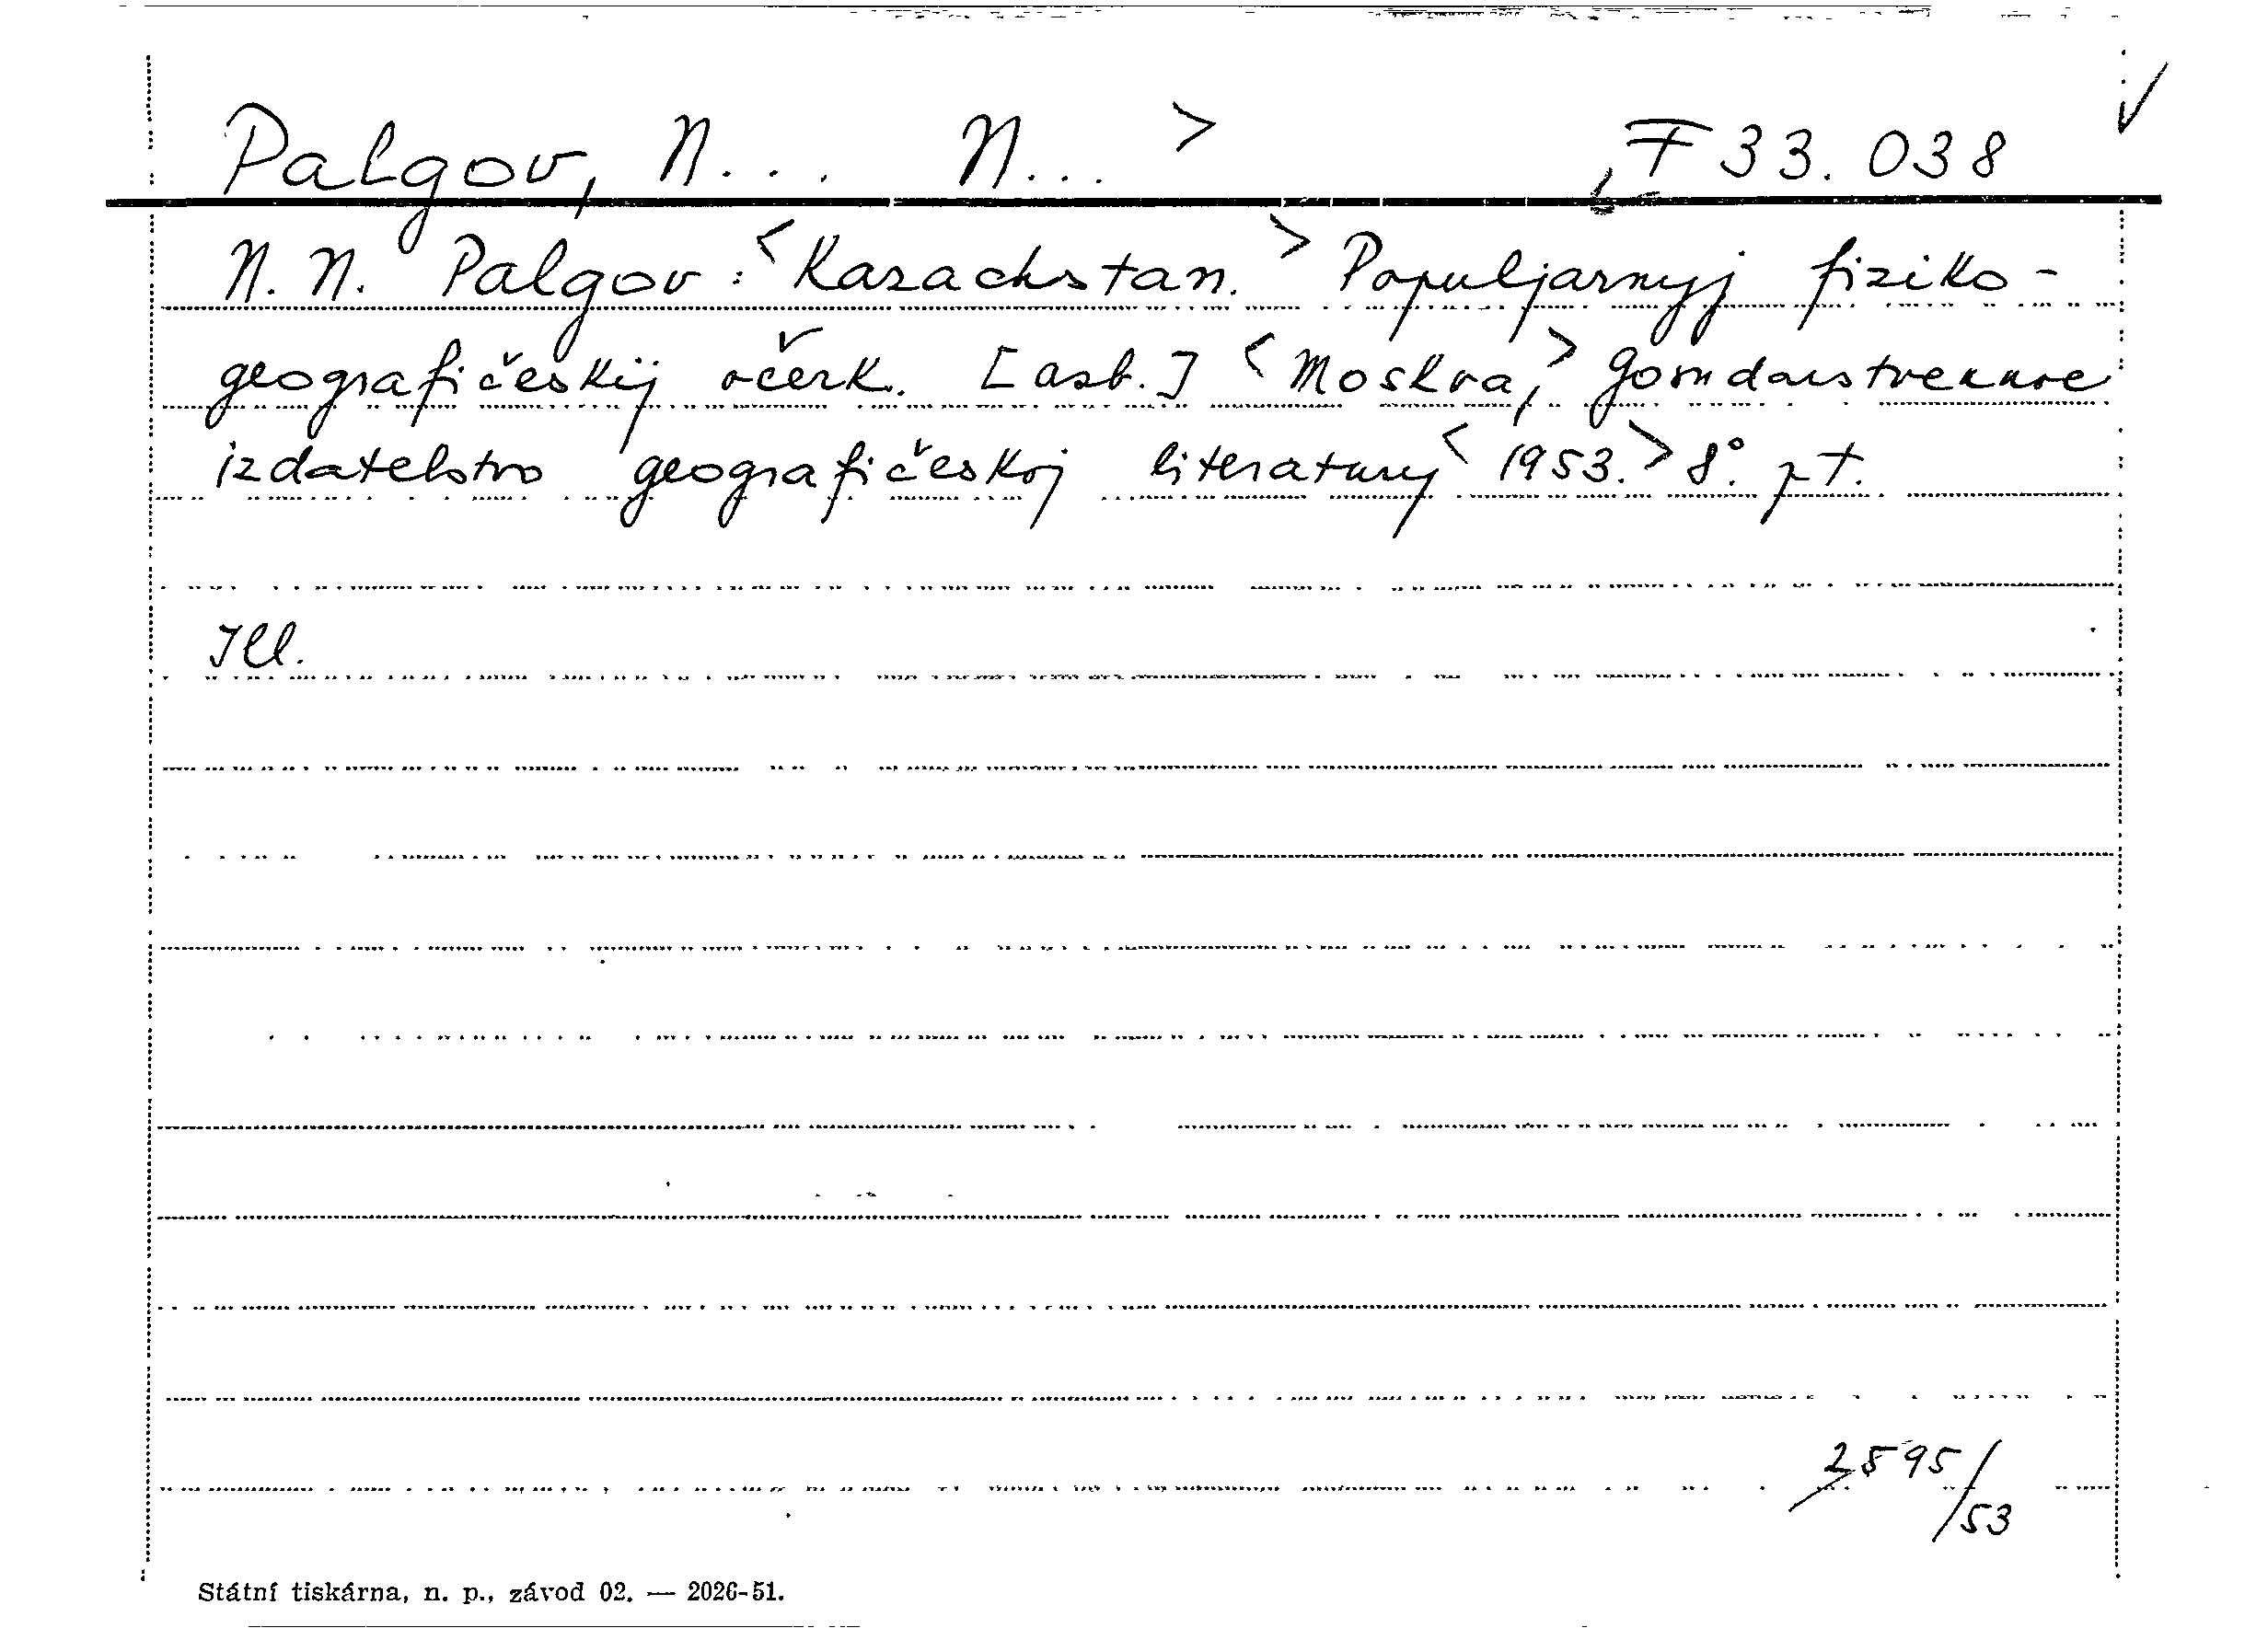 Palgov, N... N... > F 33.038
N. N. Palgov: <Kazachstan.> Populjarnyj fiziko-
geografičeskij očerk. [azb.] <Moskva,> Gosudarstvennoe
izdatelstvo geografičeskoj literatury <1953.> 8°. pt.
Ill.
2595/53
Státní tiskárna, n. p., závod 02. — 2026-51.